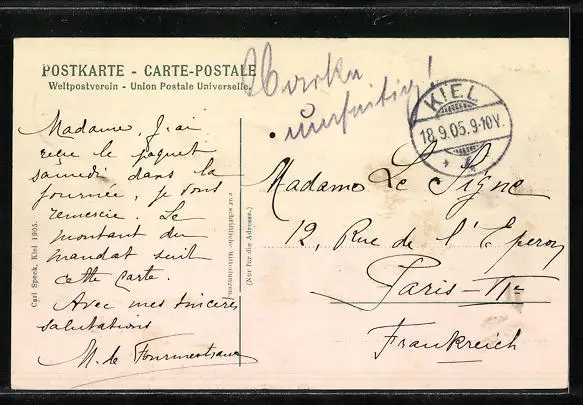 POSTKARTE - CARTE-POSTALE
Weltpostverein - Union Postale Universelle.
Marke
KIEL
18.9.05.9-10V.
Madame, J'ai
reçu le paquet
samedi dans la
journée, je vous
remercie. Le
montant du
mandat suit
cette carte.
Avec mes sincères
salutations
M. de
Madame Le Signe
12, Rue de l'Eperon
Paris - VIe
Frankreich
(Nur für die Adresse.)
Carl Speck, Kiel 1905.